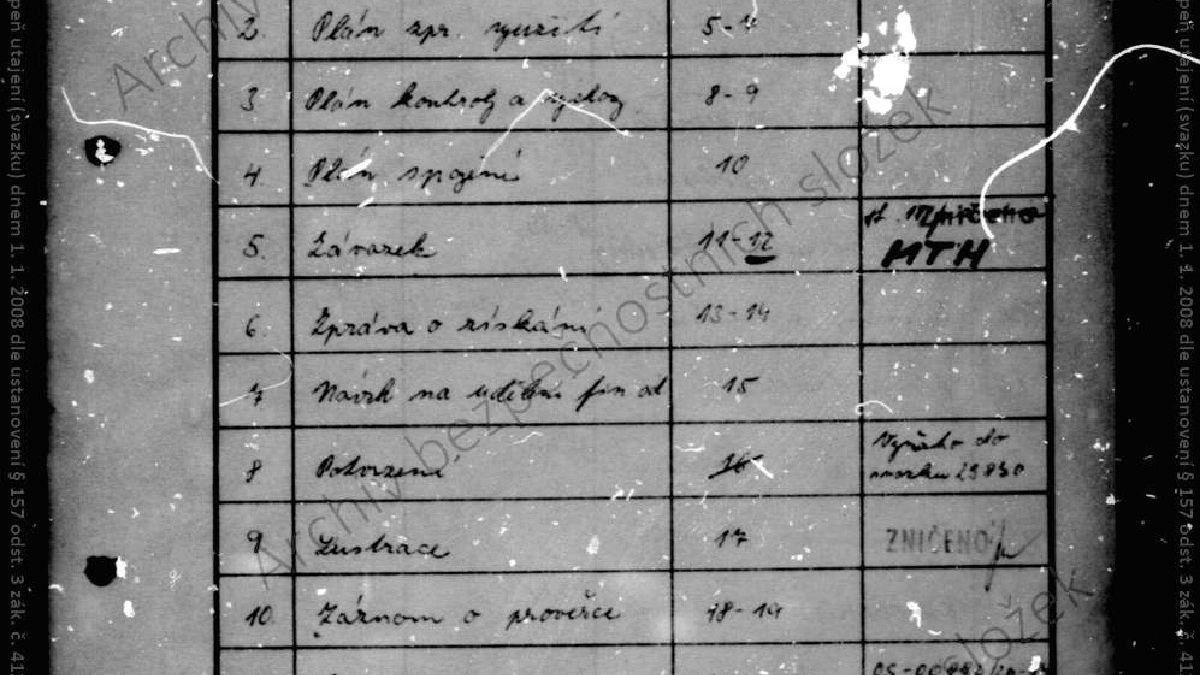 2. Plán zpr. využití 5-7
3 Plán kontroly a výchovy 8-9
4 Plán spojení 10
5. Závazek 11-12 Zničeno
MTH
6. Zpráva o získání 13-14
7 Návrh na udělení fin od 15
8 Potvrzení 16 Vyňato do
svazku 29830
9 Lustrace 17 ZNIČENO
10. Záznam o prověrce 18-19
Archiv bezpečnostních složek
peň utajení (svazku) dnem 1. 1. 2008 dle ustanovení § 157 odst. 3 zák. č. 41
peň utajení (svazku) dnem 1. 1. 2008 dle ustanovení § 157 odst. 3 zák. č. 41